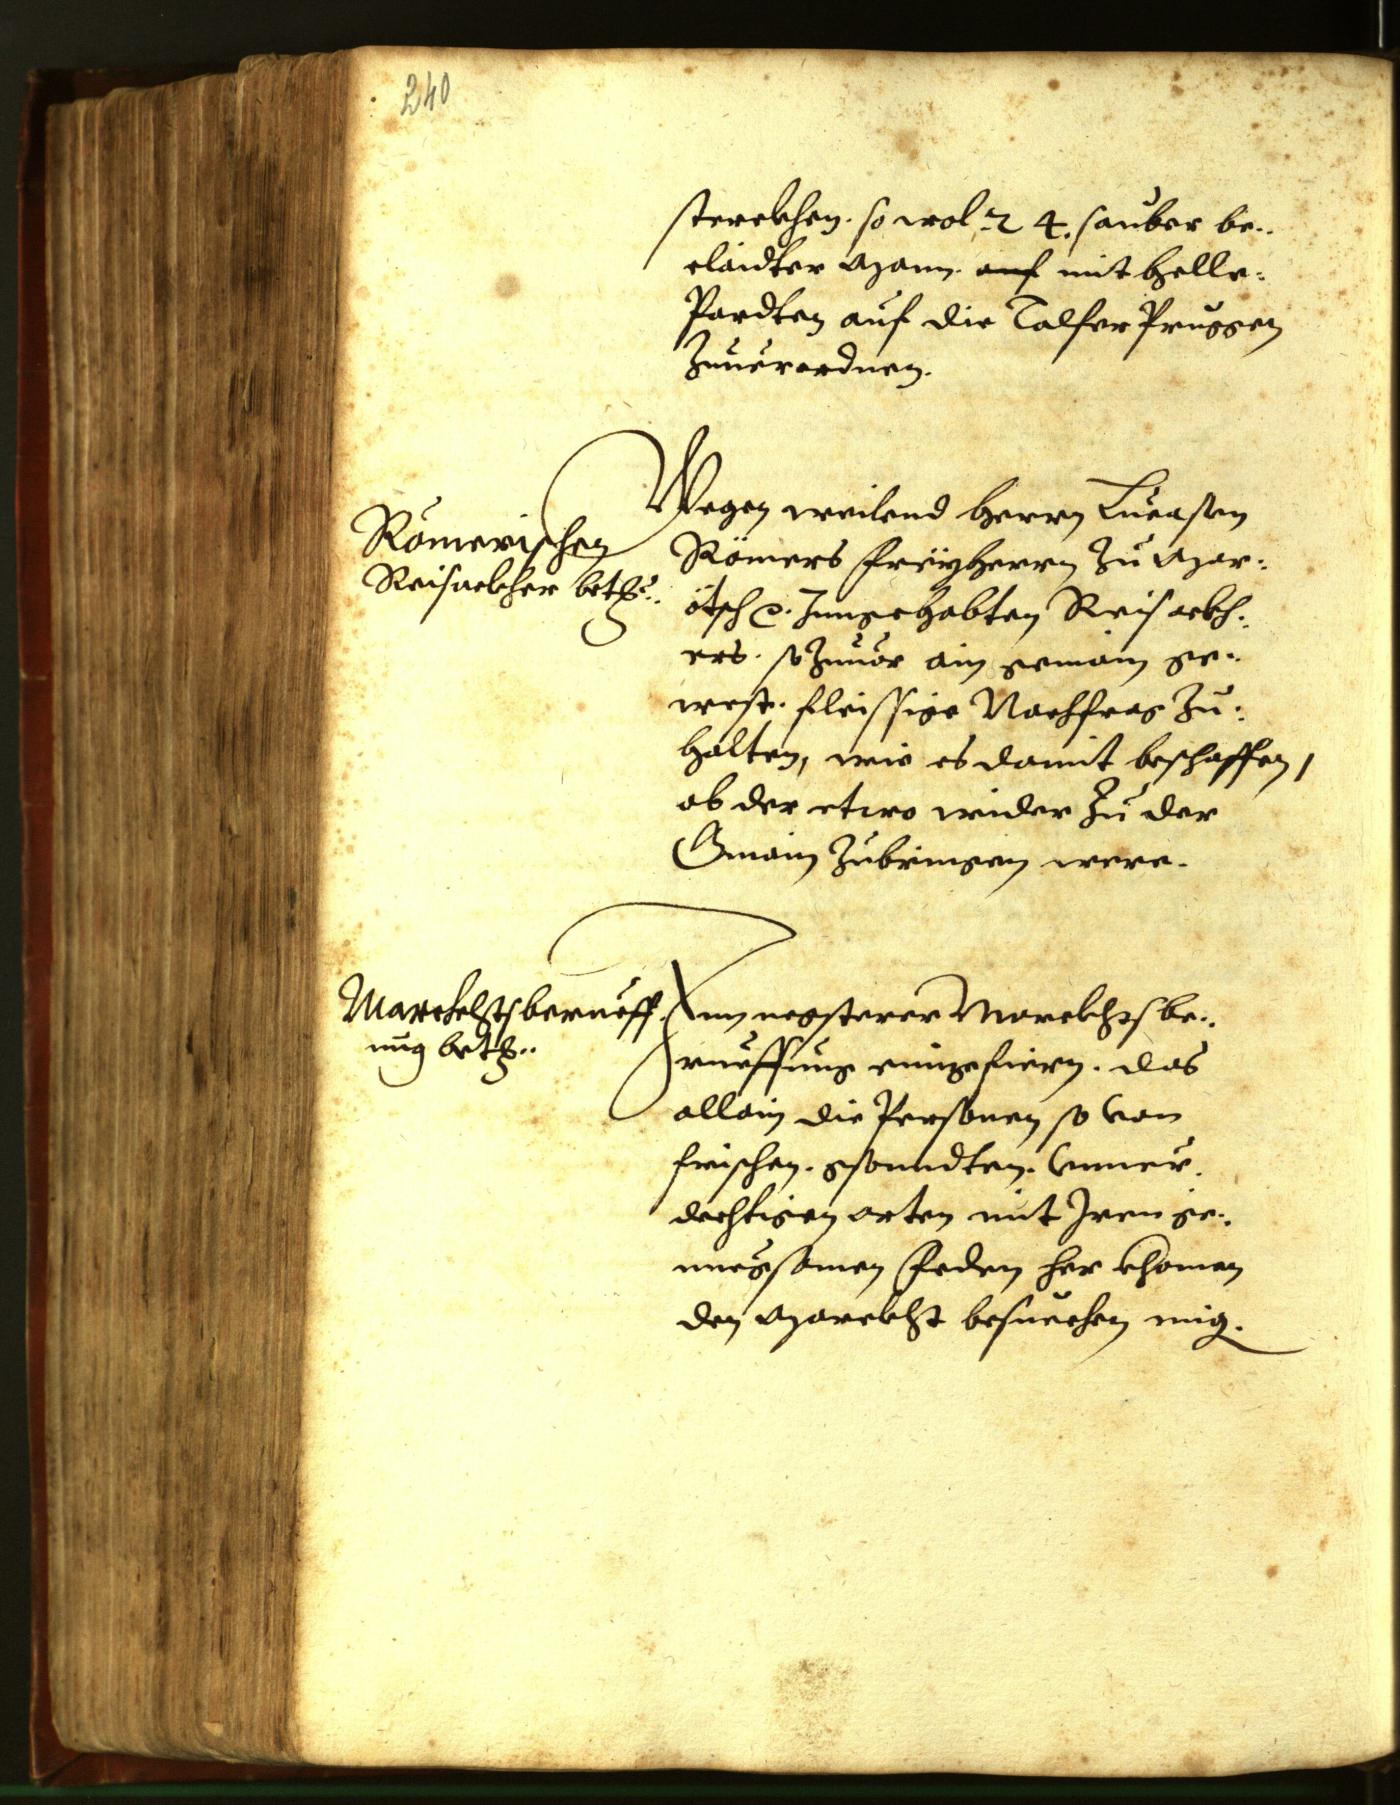 240
sterckhen. so wol 24. sauber be„
claidter Mann. auf mit Helle„
Pardten auf die Talfer Pruggen
Zuuerordnen.
Römerischen
Reisackher betr„
Wegen weilend Herrn Lucassen
Römers Freyherrn Zu Mar„
ötsch etc. Inngehabten Reisackh„
ers. so Zuuor ain gemain ge„
west. fleissige Nachfrag Zu„
halten, wie es damit beschaffen,
ob der etwo wider Zu der
Gmain Zubringen were.
Marckhtsberueff„
ung betr„
Inn negsterer Marckhtsbe„
rueffung einzefiern. das
allain die Personen so von
frischen. gsonndten. Vnuer„
dechtigen orten mit Iren ge„
nuegsamen Feden her khomen
den Marckht besuechen mig.